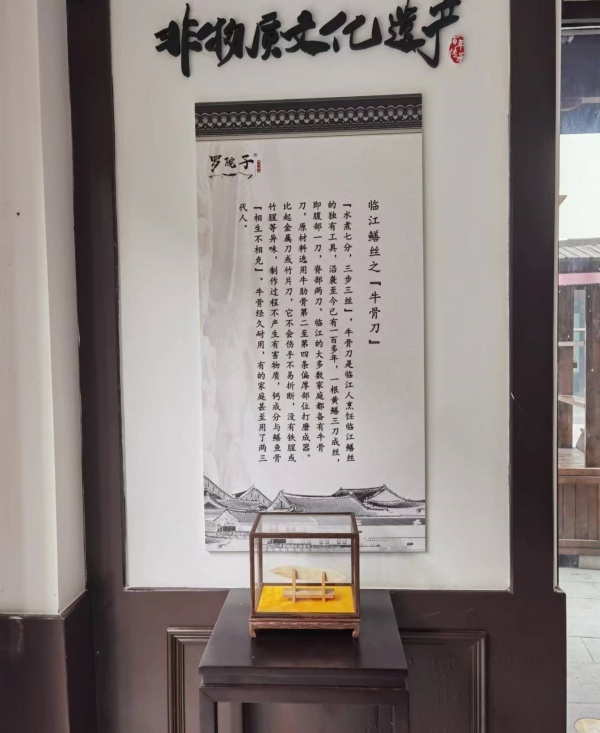 非物质文化遗产
罗院子
临江鳝丝之『牛骨刀』
『水煮七分，三步三丝』，牛骨刀是临江人烹饪临江鳝丝
的独有工具，沿袭至今已有一百多年，一根黄鳝三刀成丝，
即腹部一刀，脊部两刀。临江的大多数家庭都备有牛骨
刀，原材料选用牛肋骨第二至第四条偏厚部位打磨成器。
比起金属刀或竹片刀，它不会伤手不易折断，没有铁腥或
竹腥等异味，制作过程不产生有害物质，钙成分与鳝鱼骨
『相生不相克』。牛骨经久耐用，有的家庭甚至用了两三
代人。